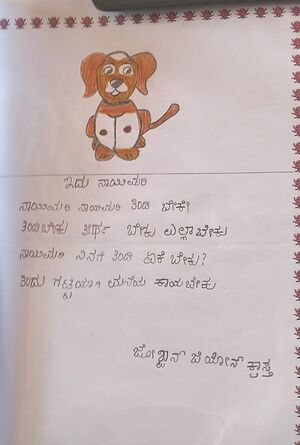 ಇದು ನಾಯಿಮರಿ
ನಾಯಿಮರಿ ನಾಯಿಮರಿ ತಿಂಡಿ ಬೇಕೇ?
ತಿಂಡಿಬೇಕು ತೀರ್ಥ ಬೇಕು ಎಲ್ಲಾ ಬೇಕು
ನಾಯಿಮರಿ ನಿನಗೆ ತಿಂಡಿ ಏಕೆ ಬೇಕು?
ತಿಂದು ಗಟ್ಟಿಯಾಗಿ ಮನೆಯ ಕಾಯಬೇಕು
ಕ್ರಾಸ್ತ